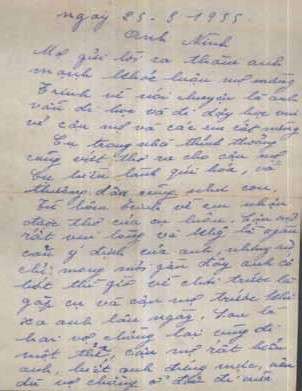 ngày 25-3-1955
Anh Ninh
Mợ gửi lời ra thăm anh
mạnh khỏe luôn mợ mừng
Trinh về nói chuyện là anh
vẫn đi học và đi dạy học vui
vẻ cậu mợ và các em rất mừng
Cụ trong nhà thỉnh thoảng
cũng viết thơ ra cho cậu mợ
Cụ hiền lành quí hóa, và
thương đàn cũng như con.
Từ hôm Trinh về em nhận
được thơ của cụ luôn. Cậu mợ
rất vui lòng và không ngăn
cản ý định của anh nhưng mợ
chỉ mong mỏi gần đây anh có
bớt thì giờ về chơi trước là
gặp cụ và cậu mợ trước khi
xa anh lâu ngày. Sau là
hai vợ chồng lại cùng đi
một thể, cậu mợ rất hiểu
anh, biết anh đứng mực, nên
dù vợ chồng ở đâu